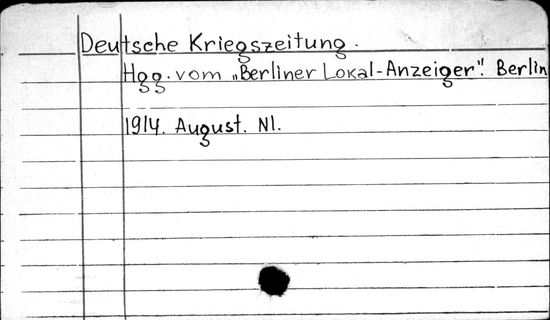 Deutsche Kriegszeitung.
Hgg. vom „Berliner Lokal-Anzeiger". Berlin
1914. August. Nl.